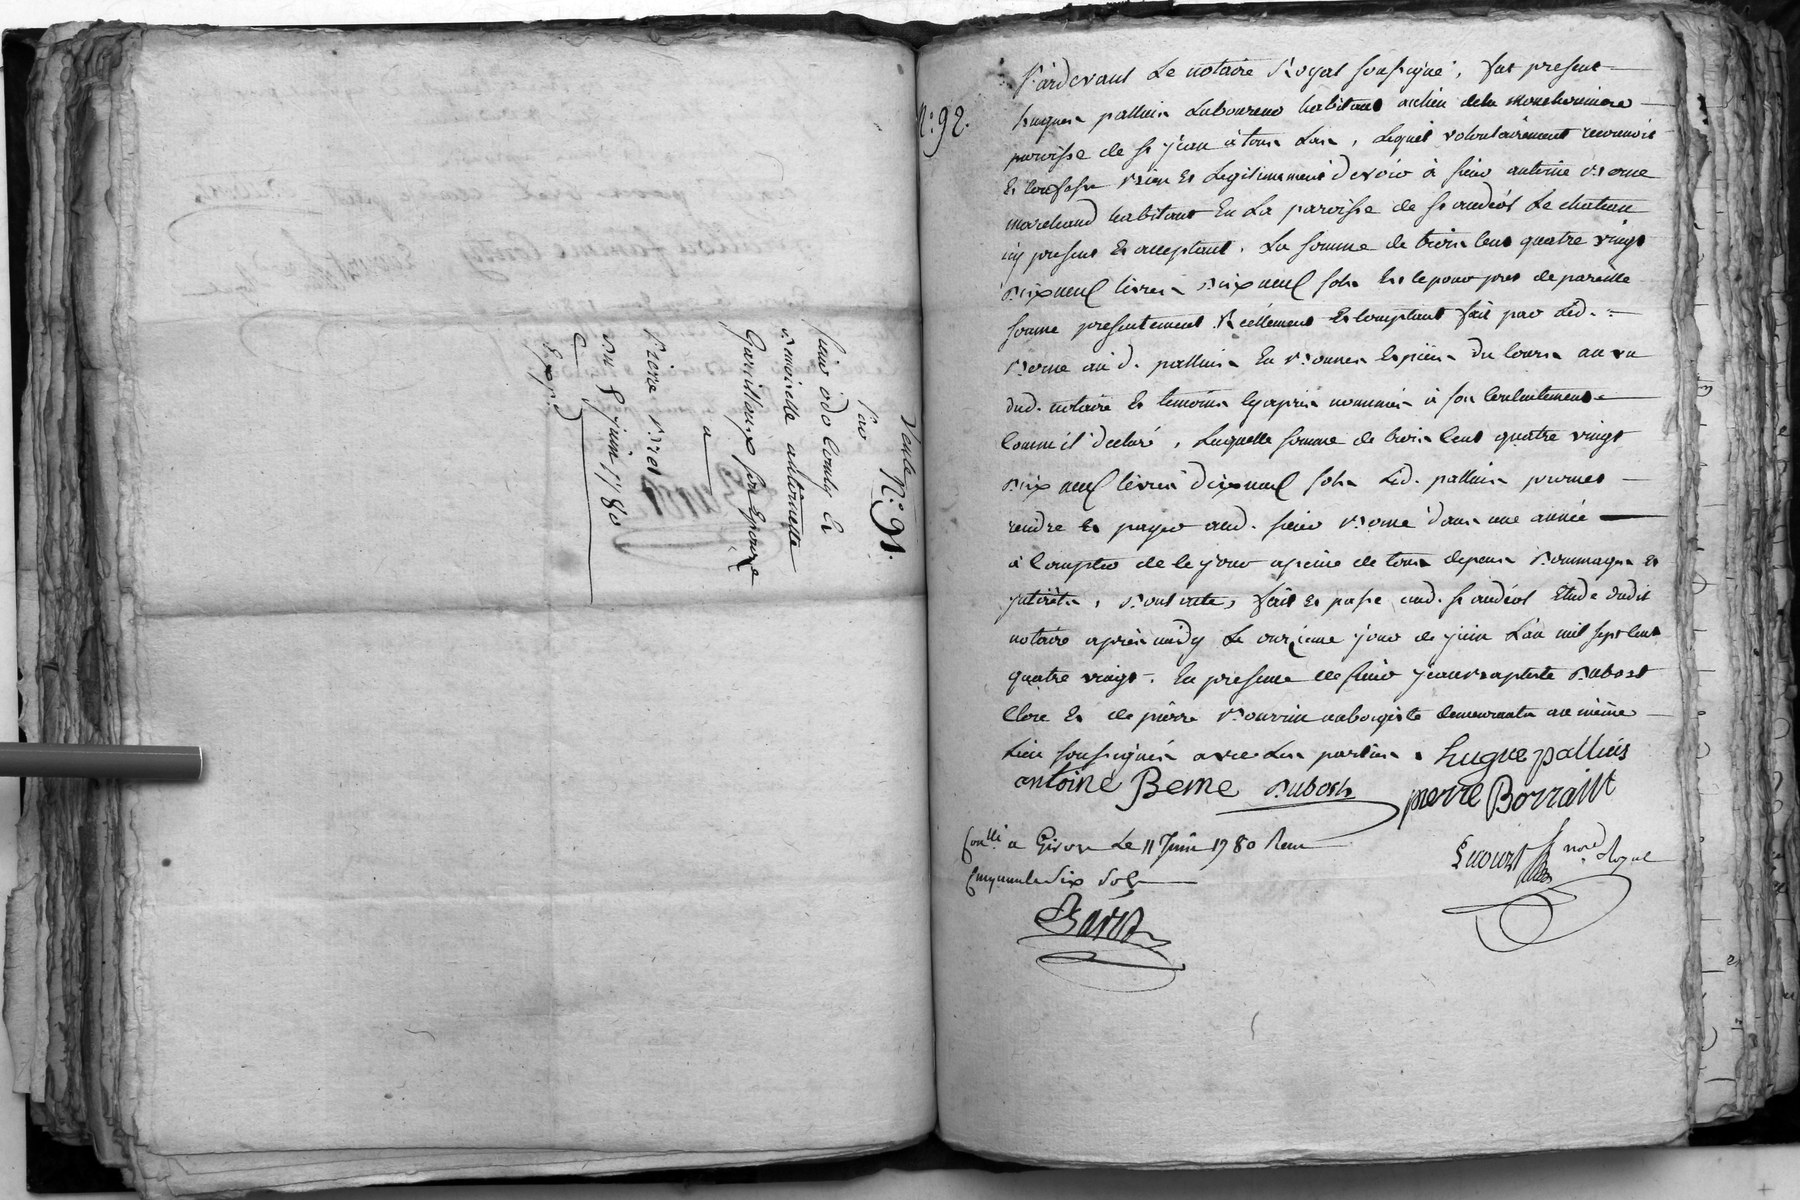 Vente N.° 91.
Par
sieur odo Comby et
demoiselle anthoinette
Garnillaux son Epouze
a
Pierre Viret
Du 8 juin 1780
Exp.d
N.° 92.
Pardevant Le notaire Royal soussigné, fut present
hugues palluis Laboureur habitant au lieu dela
paroisse de st jean à tous Las, Lequel volontairement reconnoit
Et Confesse Bien Et Legitimement devoir à sieur antoine Berne
marchand habitant En La paroisse de st andéol Le chateau
icy present Et acceptant, La somme de trois Cent quatre vingt
Dix neuf livres Dix neuf sols Et Ce pour pret de pareille
somme presentement Réellement Et Comptant fait par Led.
Berne aud. palluis En Bonnes Espèces du Cours au vu
dud. notaire Et temoins Cyaprès nommés à son Contentement
Comme il declaré, Laquelle somme de trois Cent quatre vingt
Dix neuf livres dix neuf sols Led. palluis promet
rendre Et payer aud. sieur Berne dans une année
à Compter de Ce jour apeine de tous depens Dommages Et
jnterêts, Dont acte, fait Et passé aud. st andéol Etude dudit
notaire après midy Le onzieme jour de juin L'an mil sept Cent
quatre vingt. En presence de sieur jean Baptiste Dubost
Clerc Et de pierre Bourrin aubergiste demeurants au même
Lieu soussignés avec Les parties. hugue palluis
antoine Berne Dubost pierre Borraint
Con.llé a Givors Le 11 Juin 1780 Recu
Cinquante Six Sols
not.re Royal